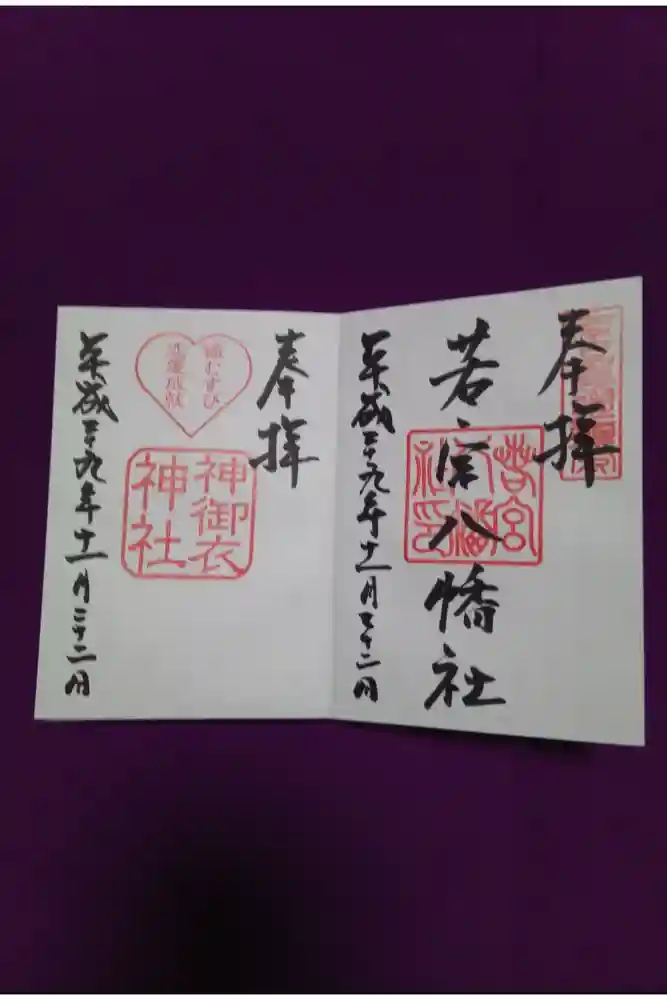 奉拝
若宮八幡社
若宮八幡社印
平成二十九年十一月二十二日
奉拝
縁むすび
恋愛成就
神御衣
神社
平成二十九年十一月二十二日